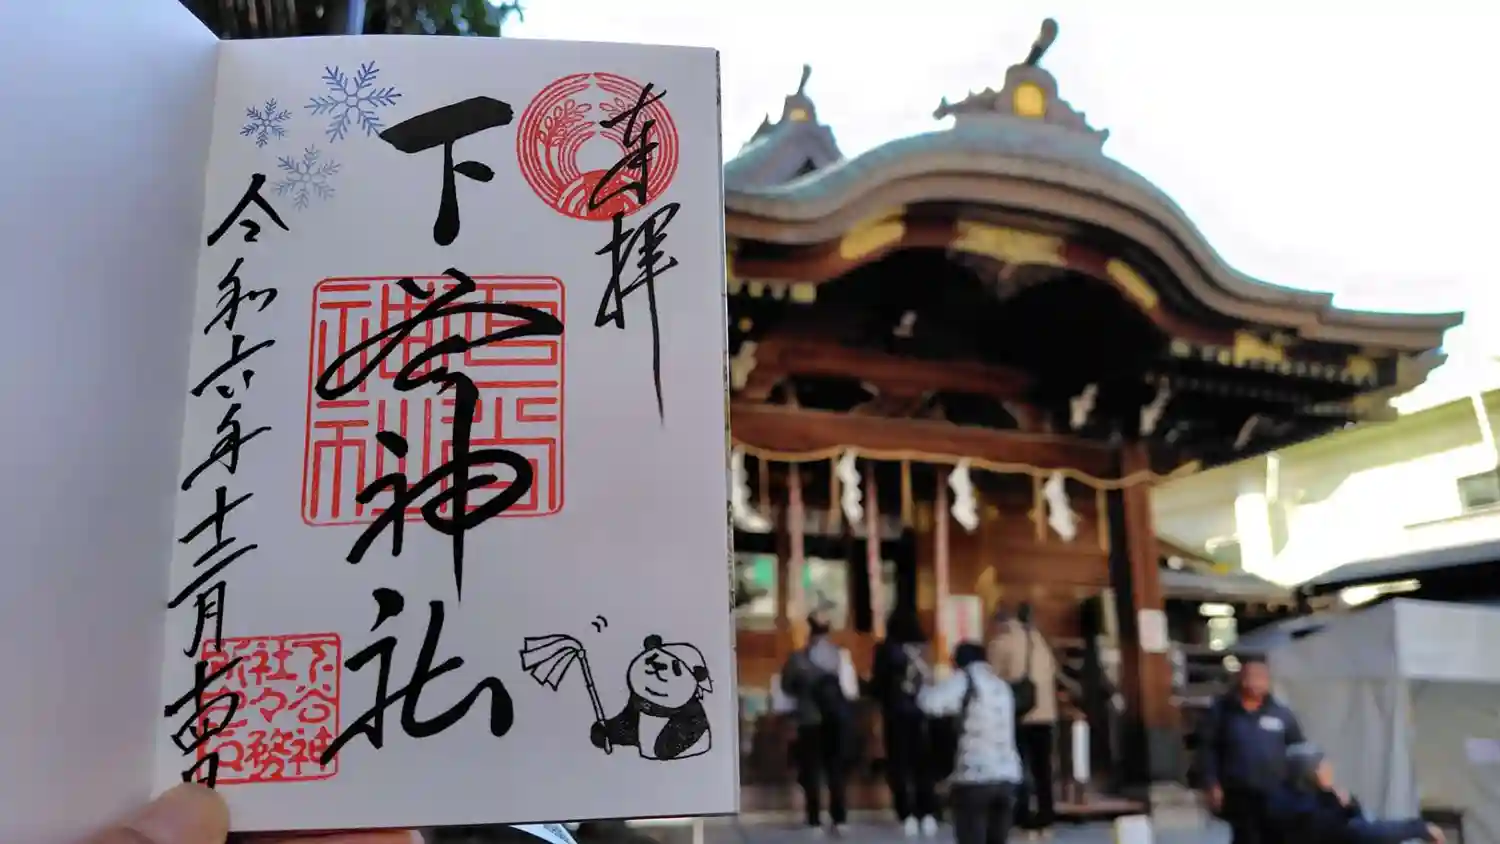 奉拝
下谷神社
下谷神社
令和六年十二月十四日
下谷神
社々務
所之印